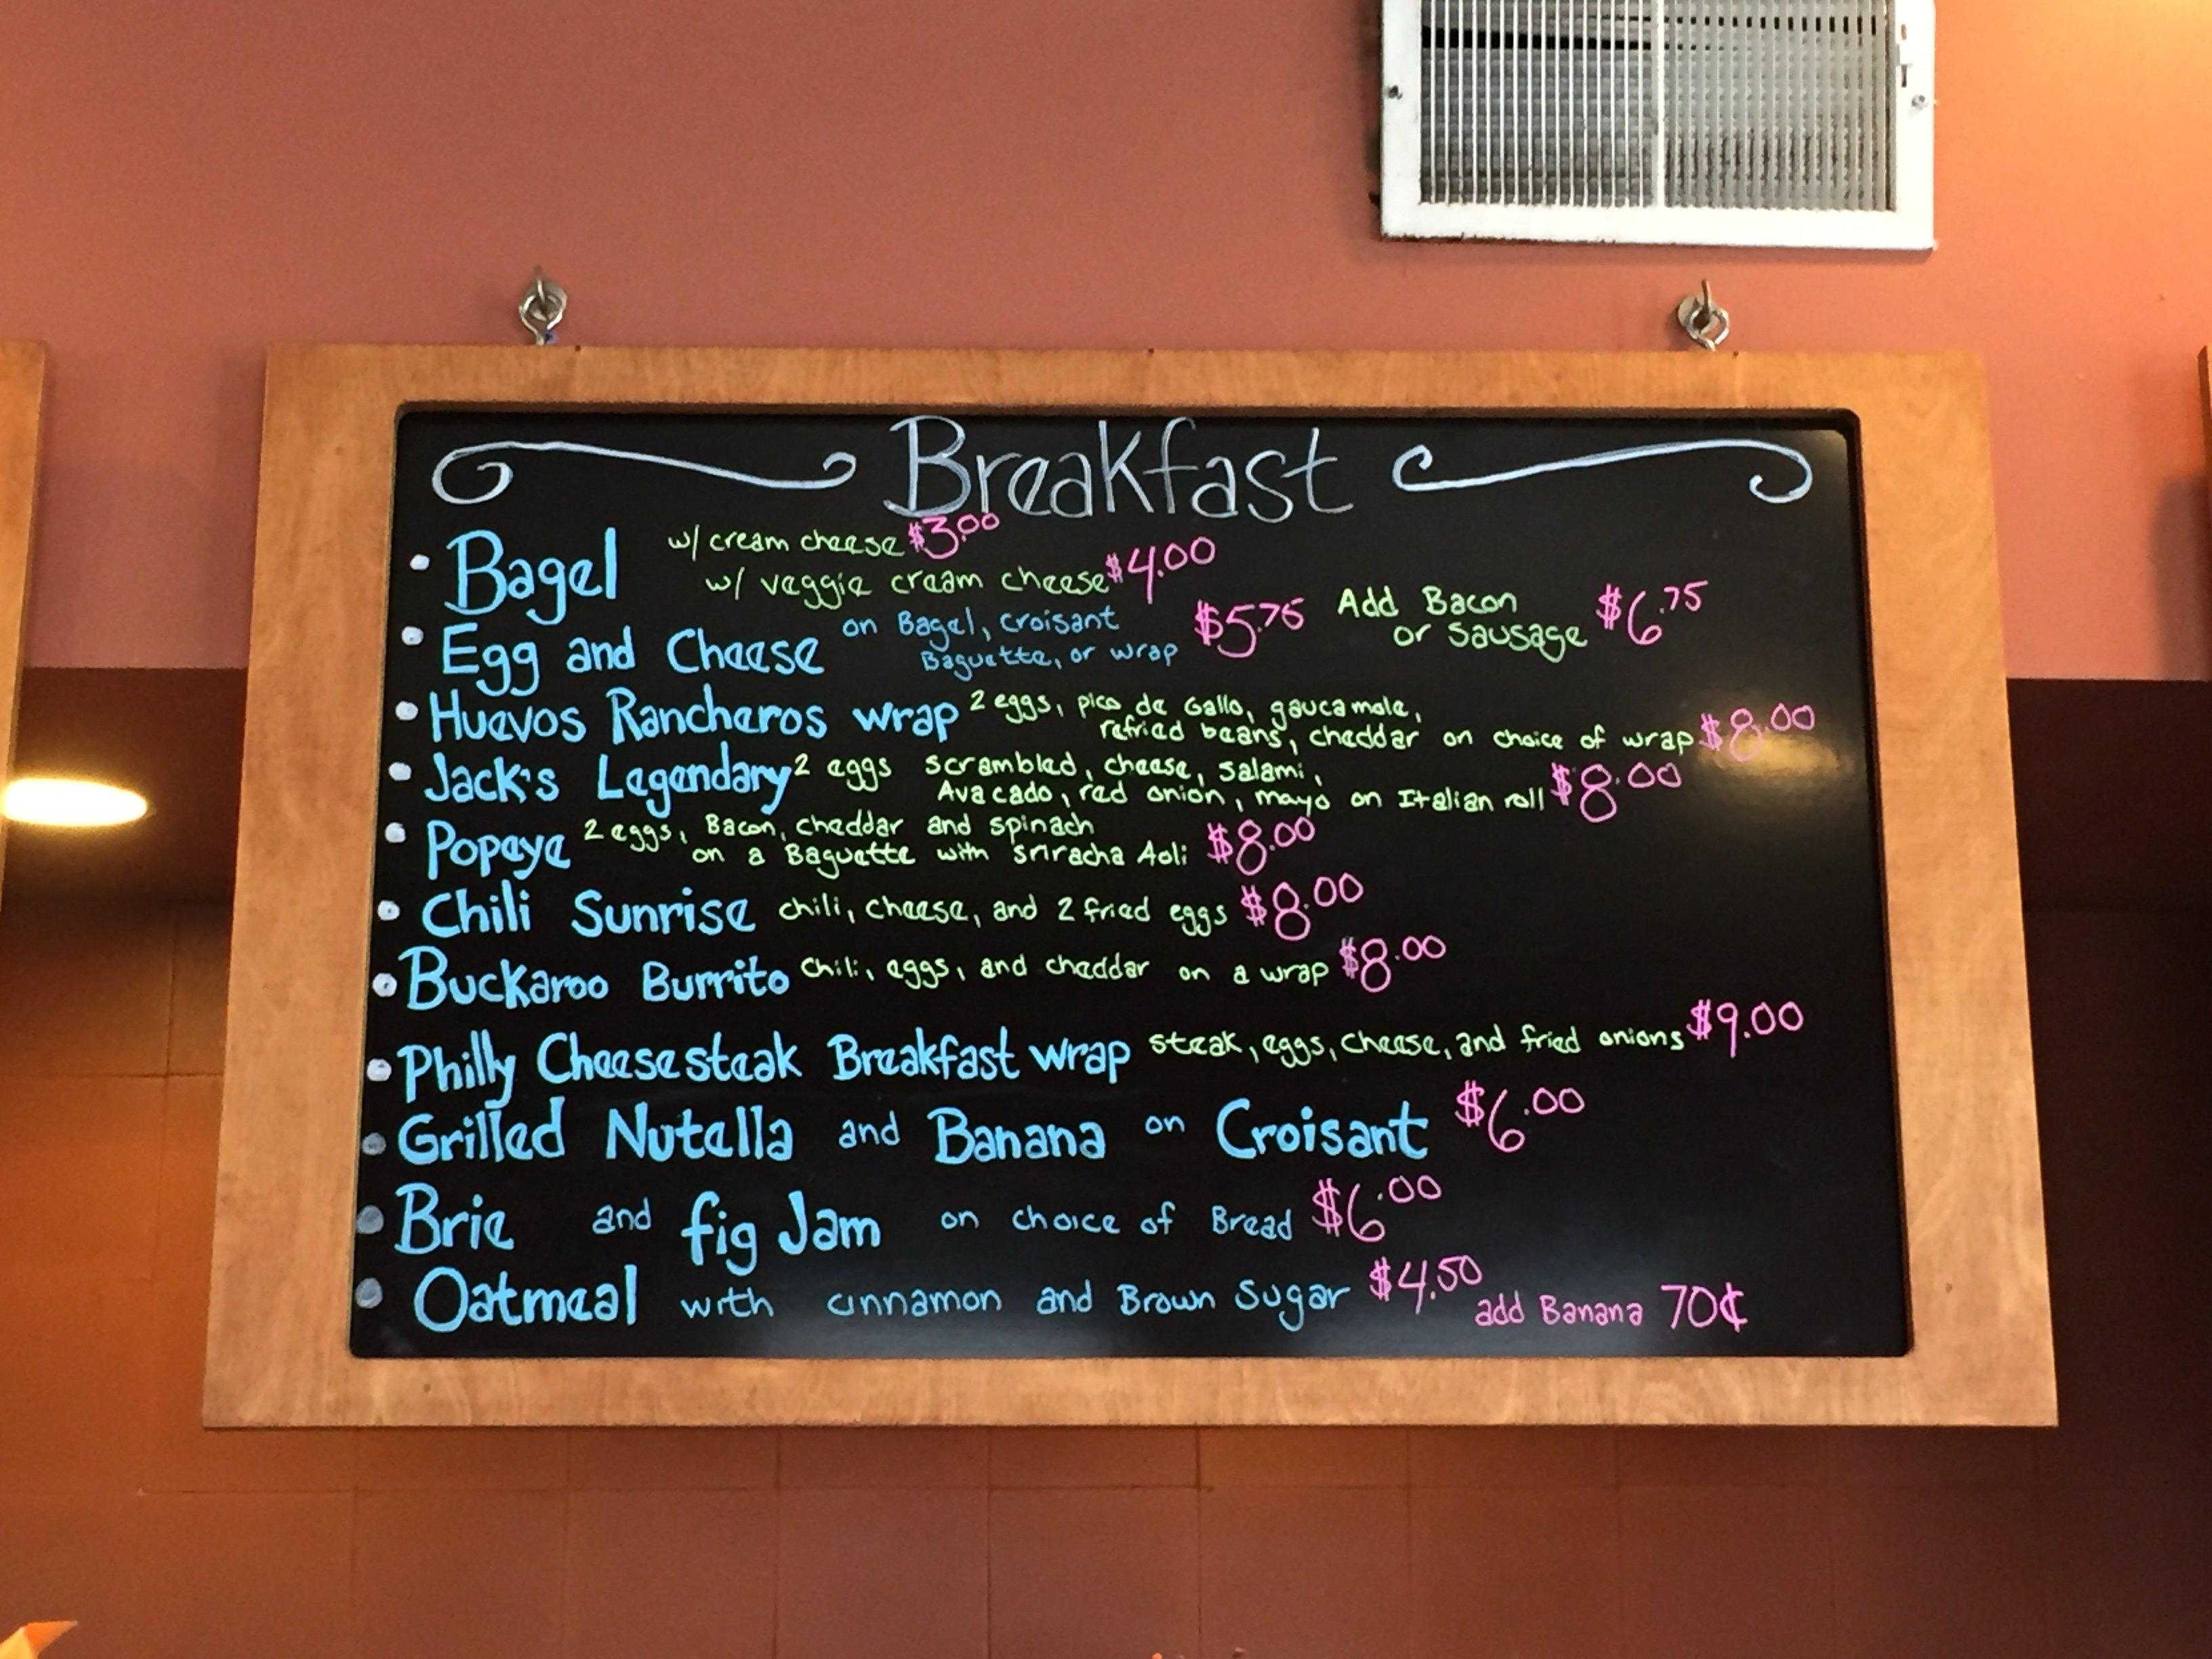 Breakfast
• Bagel w/ cream cheese $3.00
w/ veggie cream cheese $4.00
• Egg and Cheese on Bagel, croisant $5.75 Add Bacon $6.75
Baguette, or wrap or sausage
• Huevos Rancheros wrap 2 eggs, pico de Gallo, gaucamole,
refried beans, cheddar on choice of wrap $8.00
• Jack's Legendary 2 eggs scrambled, cheese, salami,
Avacado, red onion, mayo on Italian roll $8.00
• Popeye 2 eggs, Bacon, cheddar and spinach
on a Baguette with sriracha Aoli $8.00
• Chili Sunrise chili, cheese, and 2 fried eggs $8.00
• Buckaroo Burrito chili, eggs, and cheddar on a wrap $8.00
• Philly Cheesesteak Breakfast wrap steak, eggs, cheese, and fried onions $9.00
• Grilled Nutella and Banana on Croisant $6.00
• Brie and fig Jam on choice of Bread $6.00
• Oatmeal with cinnamon and Brown Sugar $4.50
add Banana 70¢